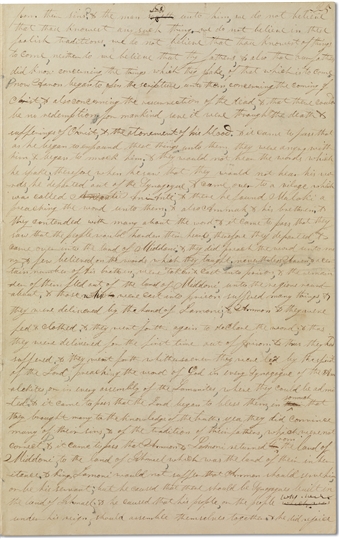 from their sins & the man said unto him we do not believe
that thou knowest any such thing we do not believe in these
foolish traditions we do not believe that thou knowest of things
to come neither do we believe that thy fathers & also that our fathers
did know concerning the things which they spake of that which is to come
now Aaron began to open the scriptures unto them concerning the coming of
Christ & also concerning the resurrection of the dead & that there could
be no redemption for mankind save it were through the death &
sufferings of Christ & the atonement of his blood & it came to pass that
as he began to expound these things unto them they were angry with
him & began to mock him & they would not hear the words which
he spake therefore when he saw that they would not hear his wo
rds he departed out of their Synagogue & came over to a village which
was called & there he found Muloki a
preaching the word unto them & also Ammah & his brethren &
they contended with many about the word & it came to pass that they
saw that the people would harden their hearts therefore they departed &
came over into the land of Middoni & they did preach the word unto ma
ny & few believed on the words which they taught nevertheless Aaron & a cer
tain number of his brethren were taken & cast into prison & the remain
der of them fled out of the land of Middoni unto the regions round
about & those who were cast into prison suffered many things &
they were delivered by the hand of Lamoni & Ammon & they were
fed & clothed & they went forth again to declare the word & thus
they were delivered for the first time out of prison & thus they had
suffered & they went forth whithersoever they were led by the spirit
of the Lord preaching the word of God in every Synagogue of the
or in every assembly of the Lamanites where they could be admit
ted & it came to pass that the Lord began to bless them insomuch
that they brought many to the knowledge of the truth yea they did convince
many of their sins & of the traditions of their fathers which were not
correct & it came to pass that Ammon & Lamoni returned from the land of
Middoni to the land of Ishmael which was the land of their inher
itance & king Lamoni would not suffer that Ammon should serve him
or be his servant but he caused that there should be Synagogues built in
the land of Ishmael & he caused that his people or the people
under his reign should assemble themselves together & he did rejoice